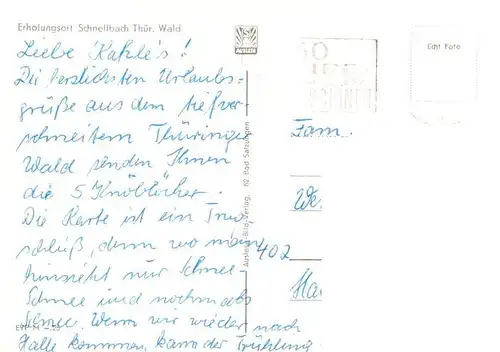 Erholungsort Schnellbach Thür. Wald
Liebe Kahle's!
Die herzlichsten Urlaubs-
grüße aus dem tiefver-
schneitem Thüringer
Wald senden Ihnen
die 5 Knöblöcher.
Die Karte ist ein Trug-
schluß, denn wo man
hinsieht nur Schnee
Schnee und nochmals
Schnee. Wenn wir wieder nach
Halle kommen, kann der Frühling
Auslese-Bild-Verlag, 62 Bad Salzungen
Echt Foto
Fam.
We
402
Ha